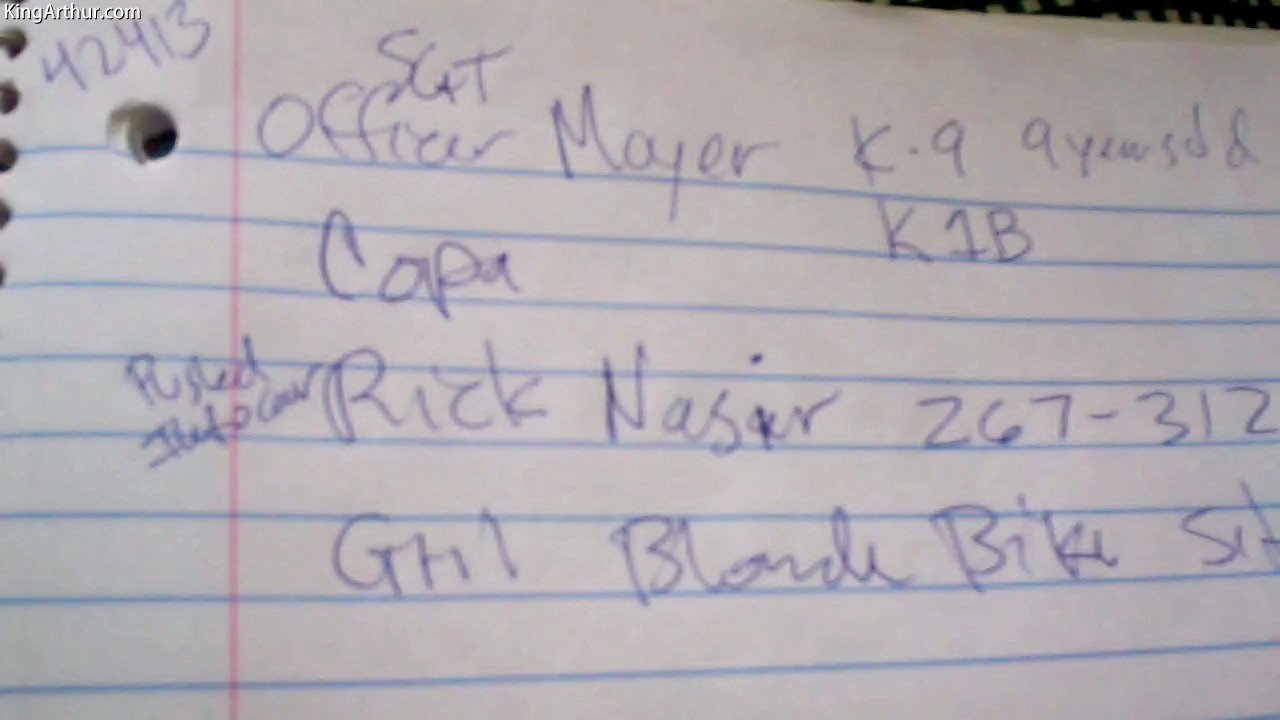 KingArthur.com
42413
SGT
Officer Mayer K-9 9 years old
K1B
Capa
Pushed
Into car
Rick Nasir 267-312
Girl Blonde Bike